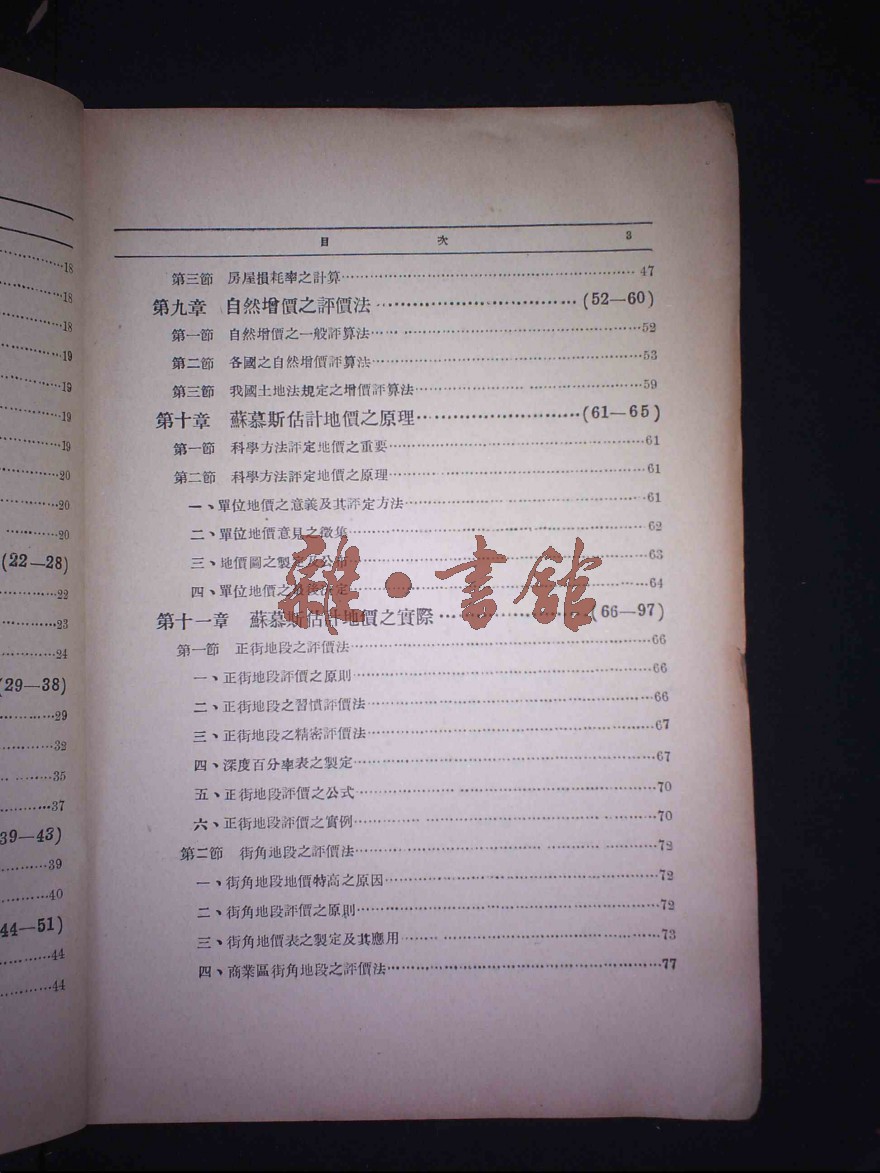 18
18
18
19
19
19
19
20
20
20
(22—28)
22
23
24
(29—38)
29
32
35
37
39—43)
39
40
44—51)
44
44
目 次 3
第三節 房屋損耗率之計算 47
第九章 自然增價之評價法 (52—60)
第一節 自然增價之一般評算法 52
第二節 各國之自然增價評算法 53
第三節 我國土地法規定之增價評算法 59
第十章 蘇慕斯估計地價之原理 (61—65)
第一節 科學方法評定地價之重要 61
第二節 科學方法評定地價之原理 61
一、單位地價之意義及其評定方法 61
二、單位地價意見之徵集 62
三、地價圖之製定及公布 63
四、單位地價之最後決定 64
第十一章 蘇慕斯估計地價之實際 (66—97)
第一節 正街地段之評價法 66
一、正街地段評價之原則 66
二、正街地段之習慣評價法 66
三、正街地段之精密評價法 67
四、深度百分率表之製定 67
五、正街地段評價之公式 70
六、正街地段評價之實例 70
第二節 街角地段之評價法 72
一、街角地段地價特高之原因 72
二、街角地段評價之原則 72
三、街角地價表之製定及其應用 73
四、商業區街角地段之評價法 77
雜·書館